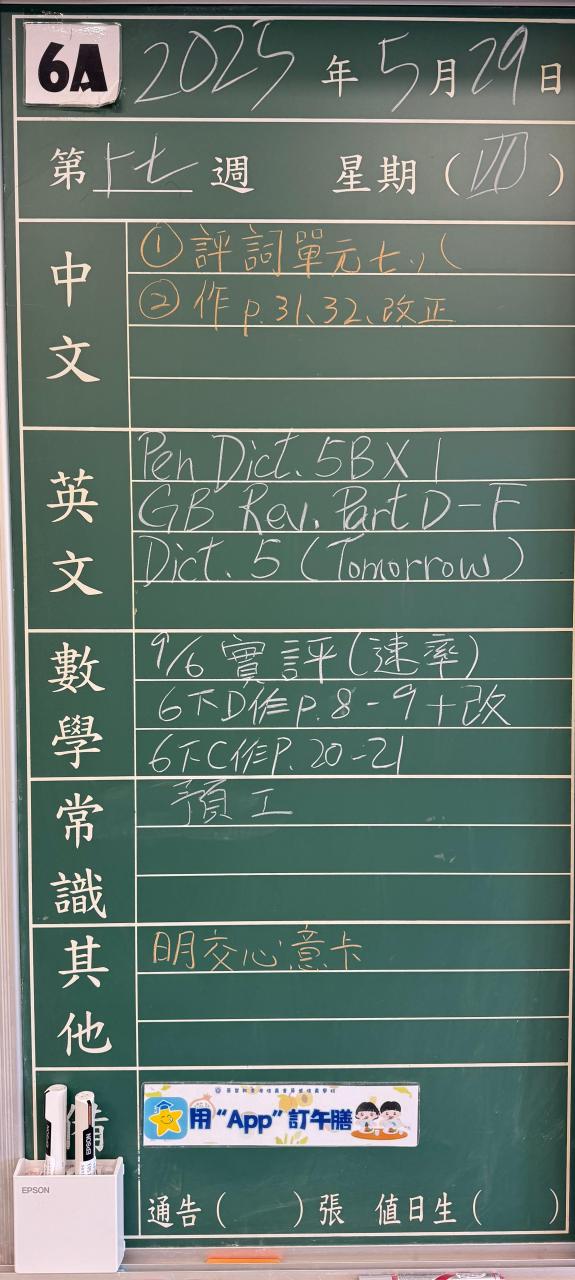 6A 2025 年 5 月 29 日
第 十七 週 星期（四）
中文
① 評詞單元七、八
② 作 p.31、32、改正
英文
Pen Dict. 5B X 1
GB Rev. Part D-F
Dict. 5 (Tomorrow)
數學
9/6 實評(速率)
6下D作 p.8-9+改
6下C作 P.20-21
常識
預工
其他
明交心意卡
備
用“App”訂午膳
EPSON
EPSON
EPSON
通告（ ）張 值日生（ ）